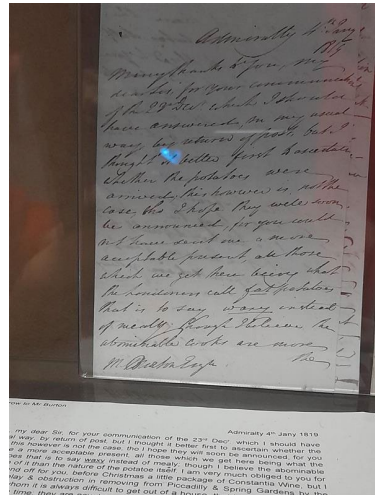 Admiralty 4th Jany
1819
Many thanks to you, my
dear Sir, for your communication
of the 23rd Decr which I should
have answered, in my usual
way, by return of post, but I
thought it better first to ascertain
whether the potatoes were
arrived, this however is not the
case, tho I hope they will soon
be announced, for you could
not have sent me a more
acceptable present, all those
which we get here being what
the Londoners call fat potatoes
that is to say waxy instead
of mealy; though I believe the
abominable cooks are more
the
row to Mr Burton
Admiralty 4th Jany 1819
my dear Sir, for your communication of the 23rd Decr which I should have
al way, by return of post, but I thought it better first to ascertain whether the
this however is not the case, tho I hope they will soon be announced, for you
e a more acceptable present, all those which we get here being what the
oes that is to say waxy instead of mealy; though I believe the abominable
of it than the nature of the potatoe itself. I am very much obliged to you for
nd off for you, before Christmas a little package of Constantia Wine, but I
lay & obstruction in removing from Piccadilly & Spring Gardens by the
hom it is always difficult to get out of a house